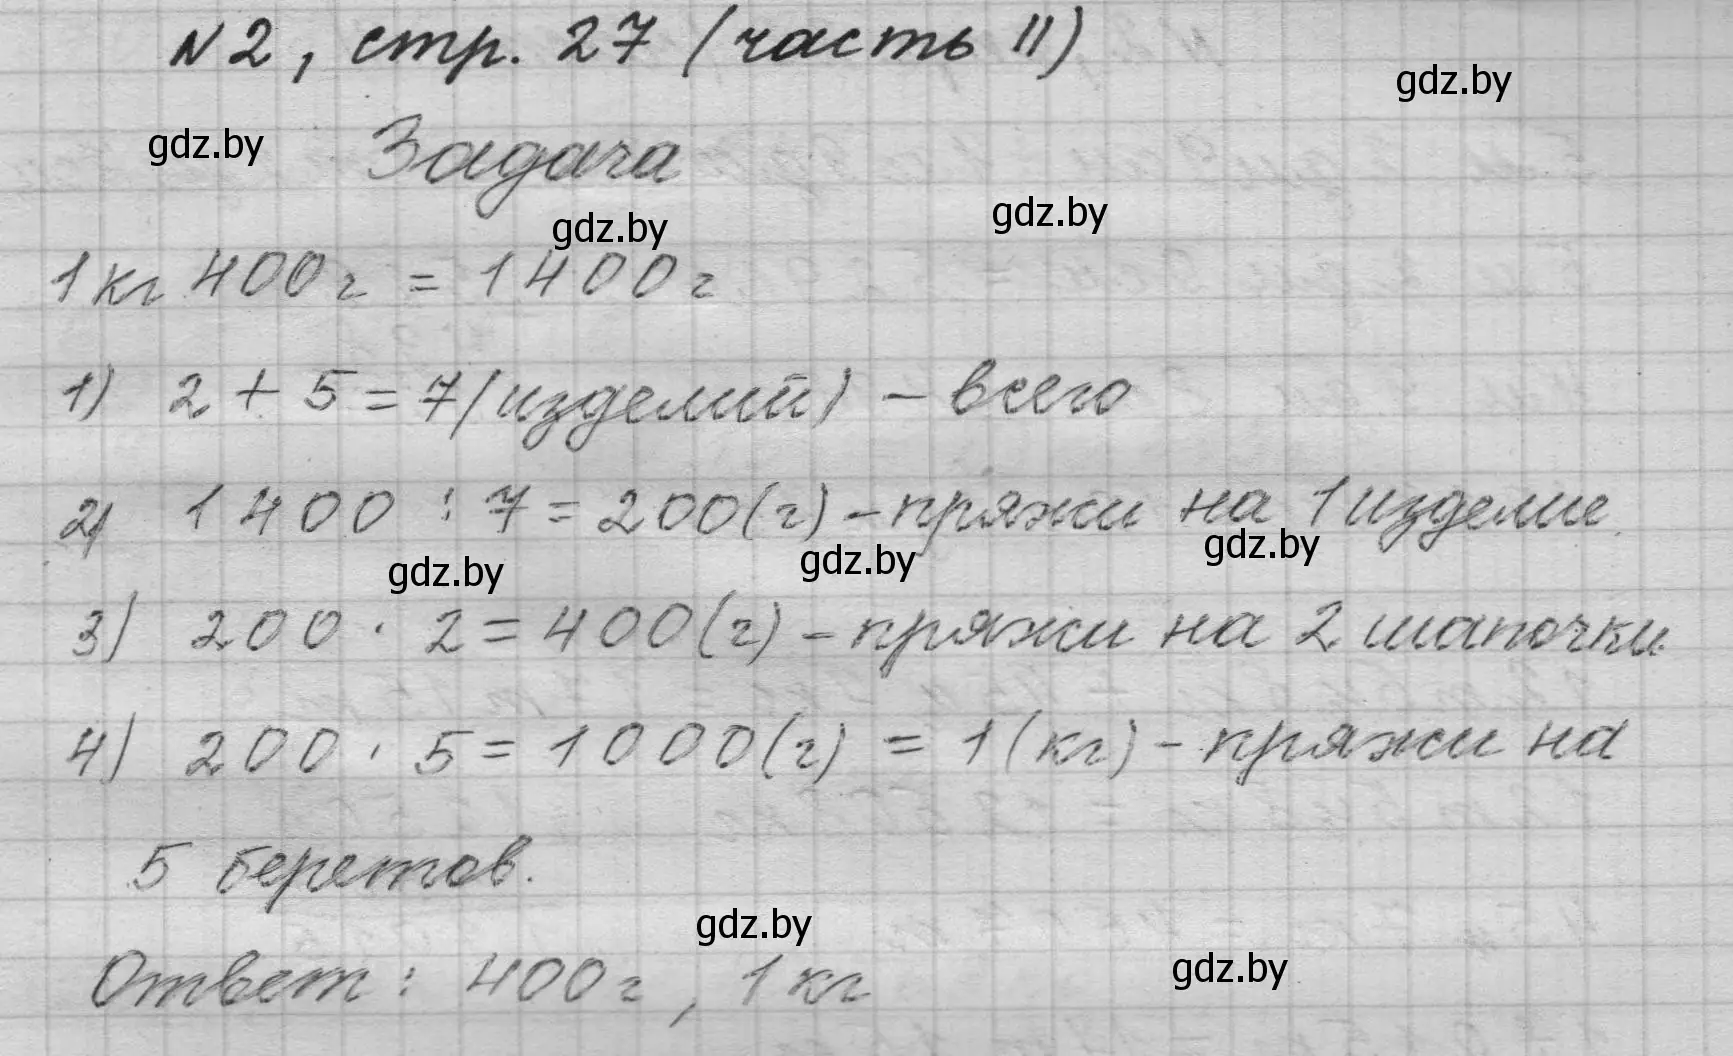 N2, стр. 27 (часть II)
gdz.by
gdz.by
Задача
gdz.by
gdz.by
1кг 400г = 1400г
1) 2 + 5 = 7(изделий) - всего
2) 1400 : 7 = 200(г) - пряжи на 1 изделие.
gdz.by
gdz.by
gdz.by
3) 200 · 2 = 400(г) - пряжи на 2 шапочки.
4) 200 · 5 = 1000(г) = 1(кг) - пряжи на
5 беретов.
gdz.by
Ответ: 400г, 1кг
gdz.by